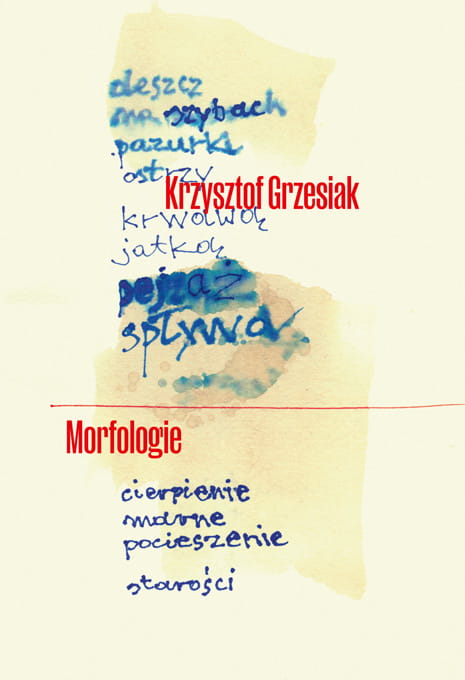 deszcz
na szybach
pazurki
ostrzy
Krzysztof Grzesiak
krwawą
jatką
pejzaż
spływa
Morfologie
cierpienie
marne
pocieszenie
starości